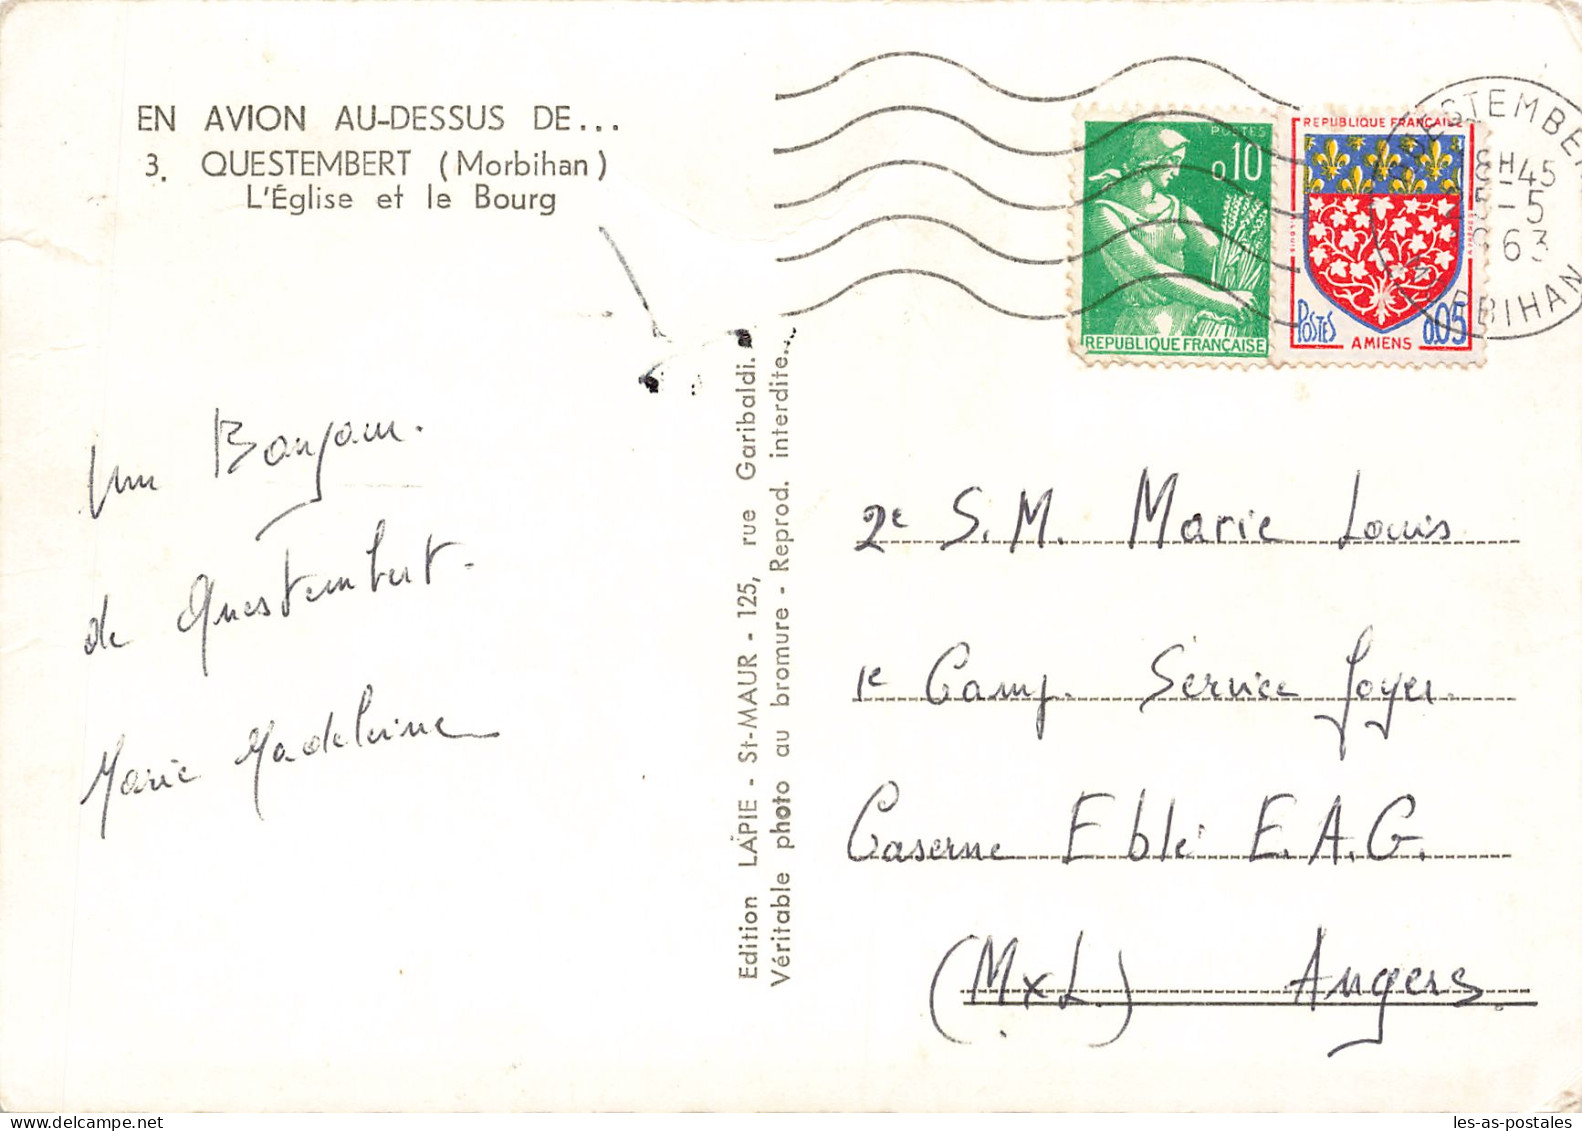 EN AVION AU-DESSUS DE...
3. QUESTEMBERT (Morbihan)
L'Église et le Bourg
Un Bonjour.
de Questembert.
Marie Madeleine
Edition LAPIE - St-MAUR - 125, rue Garibaldi.
Véritable photo au bromure - Reprod. interdite.
POSTES
0,10
REPUBLIQUE FRANÇAISE
REPUBLIQUE FRANÇAISE
POSTES 0.05
AMIENS
QUESTEMBERT
18H45
25-5
1963
MORBIHAN
2e S.M. Marie Louis
1e Camp. Service Foyer.
Caserne Eblé E.A.G.
(MxL) Angers.
les-as-postales